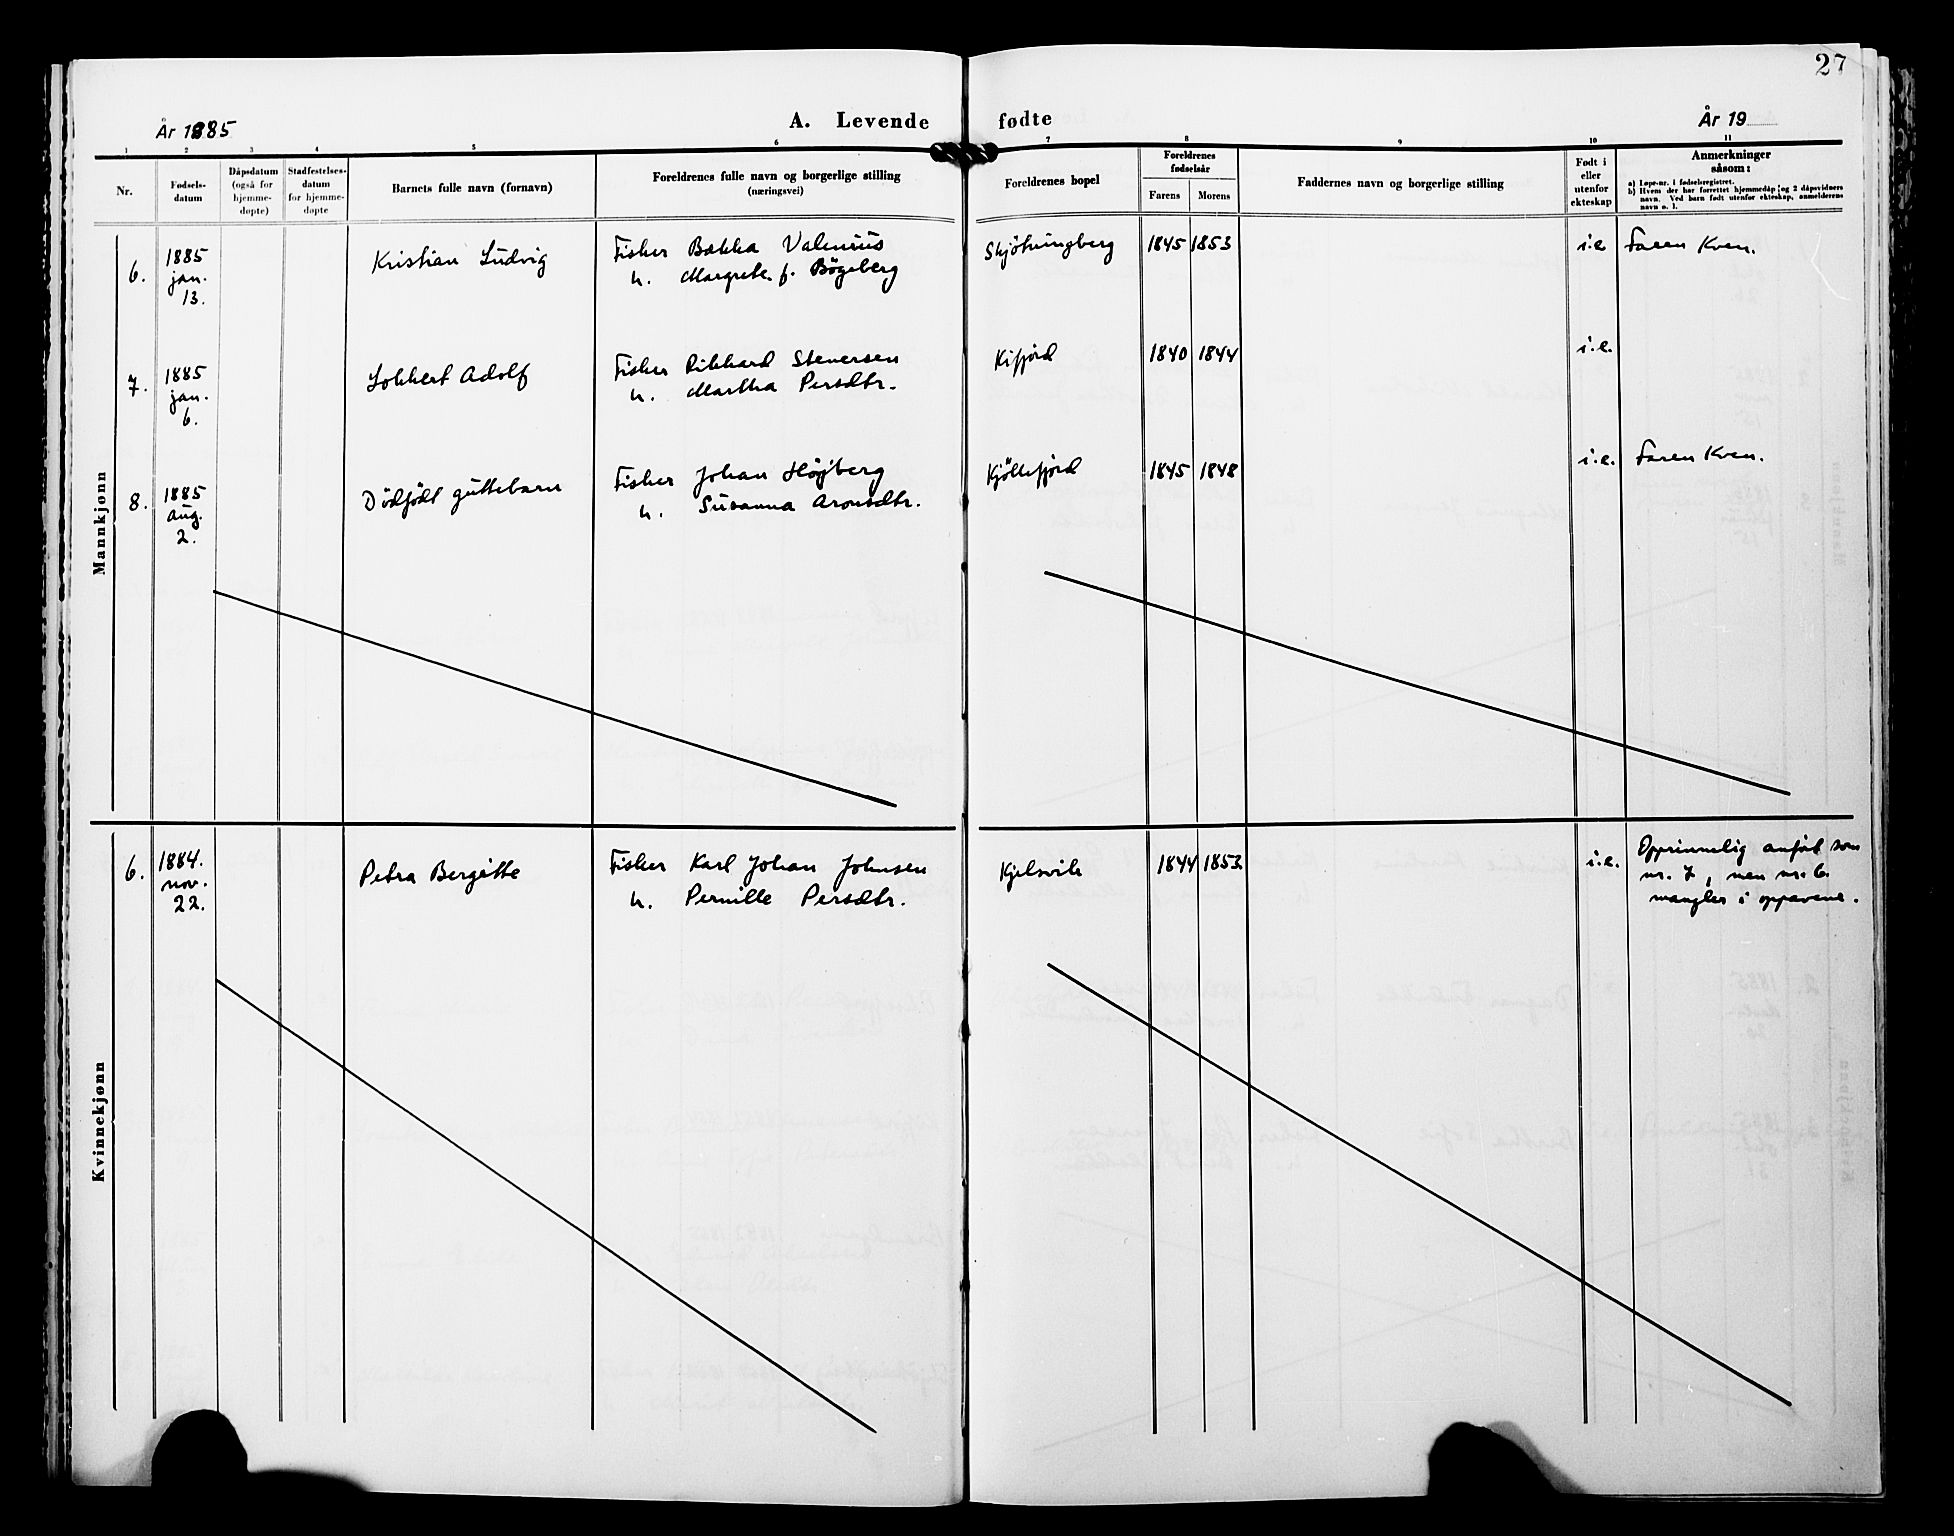 27
År 1885
A. Levende fødte
År 19
1 2 3 4 5 6 7 8 9 10 11
Nr.
Fødsels-
datum
Dåpsdatum
(også for
hjemme-
døpte)
Stadfestelses-
datum
for hjemme-
døpte
Barnets fulle navn (fornavn)
Foreldrenes fulle navn og borgerlige stilling
(næringsvei)
Foreldrenes bopel
Foreldrenes
fødselsår
Farens Morens
Faddernes navn og borgerlige stilling
Født i
eller
utenfor
ekteskap
Anmerkninger
såsom:
a) Løpe-nr. i fødselsregistret.
b) Hvem der har forrettet hjemmedåp og 2 dåpsvidners
navn. Ved barn født utenfor ekteskap, anmelderens
navn o. l.
Mannkjønn
6. 1885 jan. 13. Kristian Ludvig Fisker Bakka Valenius Skjötningberg 1845 1853 i.e. Faren Kven.
h. Margrete f. Bögeberg
7. 1885 jan. 6. Lokkert Adolf Fisker Rikkard Stenersen Kifjord 1840 1844 i.e.
h. Martha Persdtr.
8. 1885 aug. 2. Dödfödt guttebarn Fisker Johan Höjberg Kjöllefjord 1845 1848 i.e. Faren Kven.
h. Susanna Aronsdtr.
Kvinnekjønn
6. 1884. nov. 22. Petra Bergitte Fisker Karl Johan Johnsen Kjelsvik 1844 1853 i.e. Opprinnelig anført som
h. Pernille Persdtr. nr. 7, men nr. 6.
mangler i oppgavene.